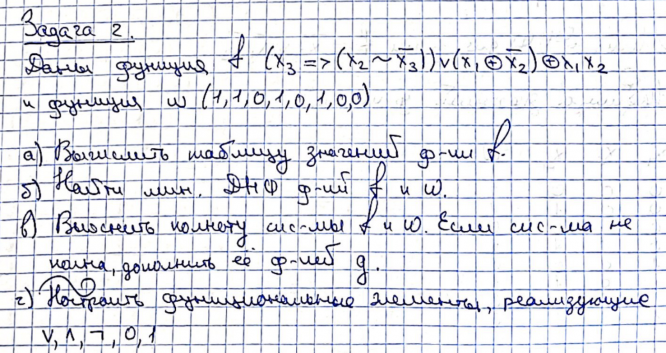 Задача 2.
Даны функция f (x₃ => (x₂ ~ x̄₃)) ∨ (x₁ ⊕ x̄₂) ⊕ x₁ x₂
и функция w (1,1,0,1,0,1,0,0)
а) Вычислить таблицу значений ф-ии f.
б) Найти мин. ДНФ ф-ий f и w.
в) Выяснить полноту сис-мы f и w. Если сис-ма не
полна, дополнить её ф-ией g.
г) Построить функциональные элементы, реализующие
∨, ∧, ¬, 0, 1